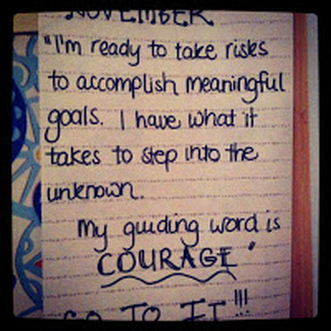 NOVEMBER
"I'm ready to take risks
to accomplish meaningful
goals. I have what it
takes to step into the
unknown.
My guiding word is
COURAGE"
GO TO IT!!!